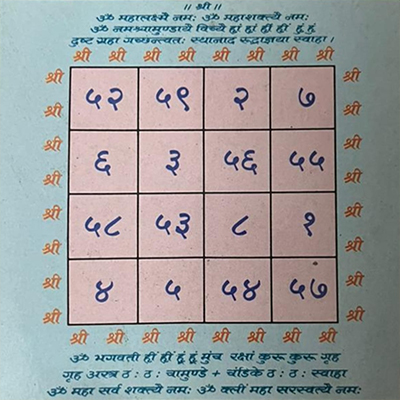 ॥ श्री ॥
ॐ महालक्ष्मै नमः ॐ महाशक्त्यै नमः
ॐ नमश्चामुण्डायै विच्चे हां हां हीं हीं हूं हूं
दुष्ट ग्रहा गच्छन्त्वतः स्थानाद रुद्राज्ञया स्वाहा।
श्री श्री श्री श्री श्री श्री श्री श्री
श्री श्री
५२ ५९ २ ७
श्री श्री
श्री श्री
६ ३ ५६ ५५
श्री श्री
श्री श्री
५८ ५३ ८ १
श्री श्री
श्री श्री
४ ५ ५४ ५७
श्री श्री
श्री श्री श्री श्री श्री श्री श्री श्री
ॐ भगवती हीं हीं हूं हूं मुंच रक्षां कुरू कुरू गृह
गृह अस्त्र ठः ठः चामुण्डे + चंडिके ठः ठः स्वाहा
ॐ महा सर्व शक्त्यै नमः ॐ क्लीं महा सरस्वत्यै नमः